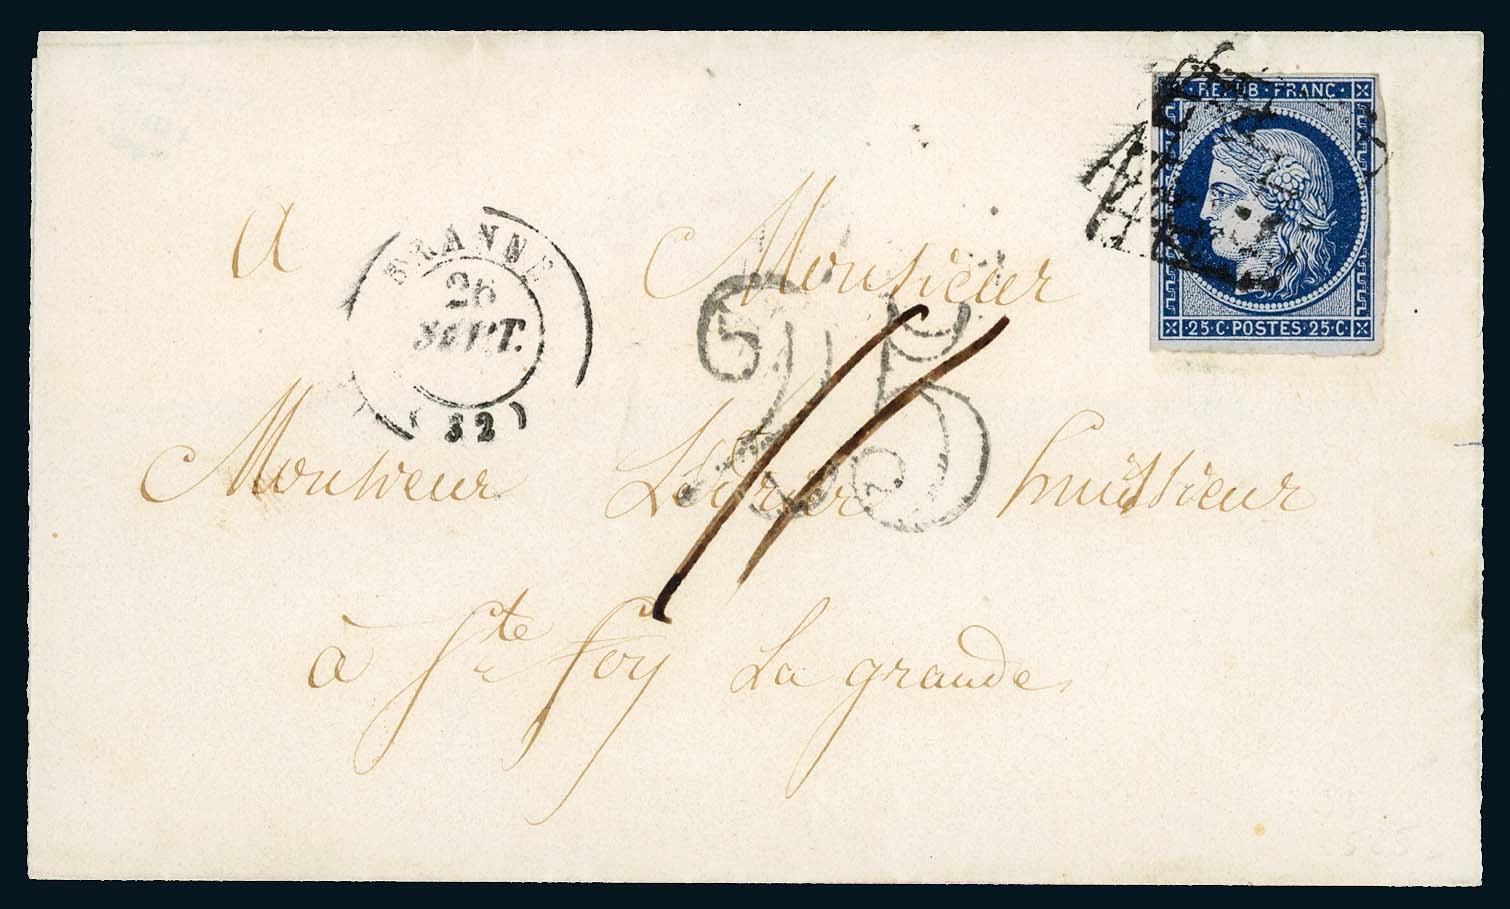 REPUB · FRANC ·
25·C·POSTES·25·C·
BRANNE
26
SEPT.
(32)
25
A Monsieur
Monsieur huissieur
à Ste foy La grande